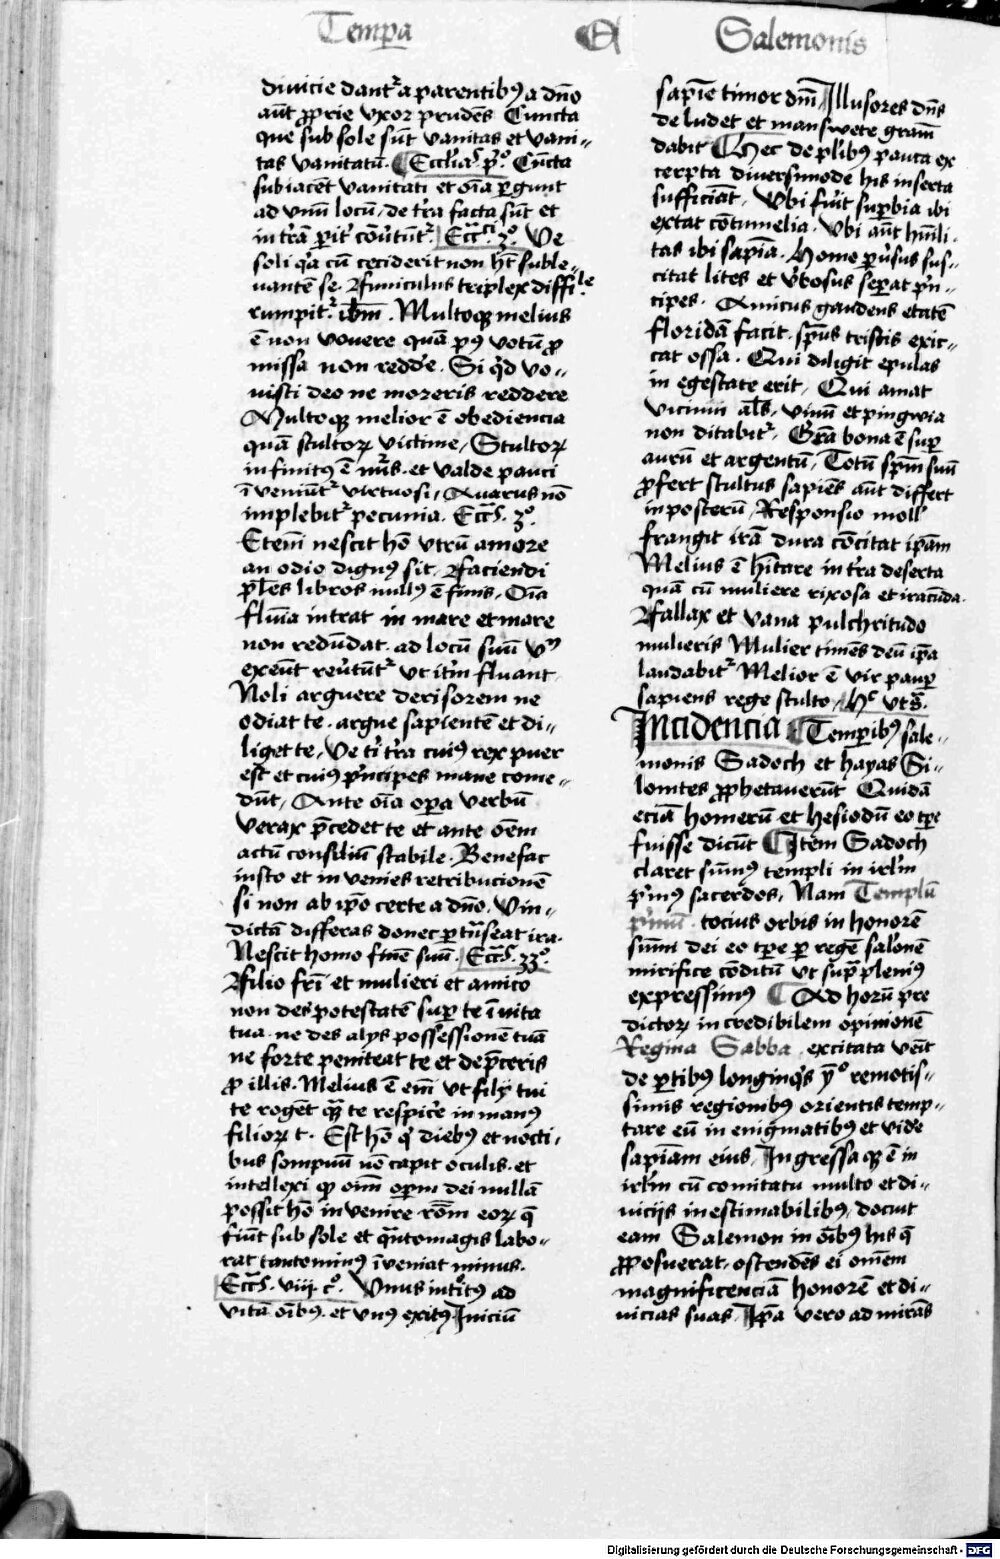 Tempa Salemonis
diuicie dantʳ a parentibꝯ a dn̄o
aūt ꝓprie vxor prudēs Cuncta
que sub sole sūt vanitas et vani-
tas vanitatū. Ecclīaˢ pº. Cūcta
subiacēt vanitati et oīa ꝑgunt
ad vnū locū, de tr̄a facta sūt et
in trā ꝑitʳ cōūtūtʳ. Eccͨⁱ 3º. Ve
soli qͥa cū ceciderit non hꝫ suble-
uantē se. Funiculus triplex diffile
rumpitʳ. ibm̄. Multoqꝫ melius
ē non vouere quā pꝯ votū ꝓ
missa non redde. Si qͥd vo-
uisti deo ne moreris reddere
Multoqꝫ melior ē obediencia
quā stultoꝝ victime, Stultoꝝ
infinitꝯ ē nūs. et valde pauci
īveniūtʳ virtuosi, Auarus nō
implebitʳ pecunia. Eccͨˢ. 3º.
Etem̄ nescit hō vtrū amore
an odio dignꝯ sit, Faciendi
pl̄es libros nullꝯ ē finis, Oīa
fluīa intrat in mare et mare
non redūdat. ad locū suū vn̄
exeūt reūtūtʳ vt itm̄ fluant
Noli arguere derisorem ne
odiat te. argue sapientē et di-
liget te, Ve tͥ tr̄a cuiꝯ rex puer
est et cuiꝯ pͥncipes mane come-
dūt, Ante oīa oꝑa verbū
verax p̄cedet te et ante oēm
actū consiliū stabile. Benefac
iusto et in venies retribucionē
si non ab ip̄o certe a dn̄o. Vin-
dictā differas donec ꝑtūseat ira.
Nescit homo finē suū. Eccͨˢ. 33º.
Filio frī et mulieri et amico
non des potestatē suꝑ te ī vita
tua. ne des alys possessionē tuā
ne forte peniteat te et dep̄ceris
ꝓ illis. Melius ē em̄ vt filÿ tui
te rogēt qͣꝫ te respice in manꝯ
filioꝝ t. Est hō qͥ diebꝯ et nocti-
bus sompnū nō capit oculis. et
intellexi qꝫ oīm oꝑm dei nullā
possit hō invenire rōem eoꝝ q̄
fiūt sub sole et qͣntomagis labo-
rat tantominꝯ īveniat minus.
Eccͨˢ. viij. cº. Vnus introͥtꝯ ad
vitā oībꝯ. et vnꝯ exitꝯ Iniciū
sapīe timor dnī, Illusores dn̄s
deludet et mansuete gram̄
dabit Hec de pl̄ibꝯ pauca ex
cerpta diversimode his inserta
sufficiāt. Vbi fuīt suꝑbia ibi
extat cōtumelia. Vbi aūt hūili-
tas ibi sapīa. Homo ꝑūsus sus-
citat lites et v̄bosus seꝑat pͥn-
cipes. Amicus gaudens etatē
floridā facit. sp̄us tristis exic-
cat ossa. Qui diligit epulas
in egestate erit, Qui amat
vicium al̄s, vinū et pingwia
non ditabitʳ. Gr̄a bona ē suꝑ
aurū et argentū, Totū sp̄m suū
ꝓfert stultus sapiēs aūt differt
in posterū, Responsio moll'
frangit irā dura cōcitat ip̄am
Melius ē hītare in tr̄a deserta
quā cū muliere rixosa et iracūda.
Fallax et vana pulchritudo
mulieris Mulier timēs deū ip̄a
laudabitʳ Melior ē vir pauꝑ
sapiens rege stulto, Hͨ vt sͣ.
Incidencia Temꝑibꝯ sale-
monis Sadoch et hayas Si-
lonites ꝓphetauerūt Quidā
eciā homerū et hesiodū eo tꝑe
fuisse dicūt Item Sadoch
claret sūmꝯ templi in irl̄m
pͥmꝯ sacerdos, Nam Templū
pͥmū. tocius orbis in honorē
sūmi dei eo tꝑe ꝑ regē salōnē
mirifice cōditū vt supͣ pleniꝯ
expressimꝯ Ad horū pre
dictoꝝ incredibilem opinionē
Regina Sabba. excitata vēit
de ꝑtibꝯ longinqͥs ymº remotis-
simis regionibꝯ orientis temp-
tare eū in enigmatibꝯ et vide
sapīam eius, Ingressa qꝫ ē in
irl̄m cū comitatu multo et di-
uicijs inestimabilibꝯ, docuit
eam Salemon in oībꝯ his q̄
ꝓposuerat, ostendēs ei omēm
magnificenciā honorē et di-
uicias suas, Ip̄a vero admirās
Digitalisierung gefördert durch die Deutsche Forschungsgemeinschaft - DFG